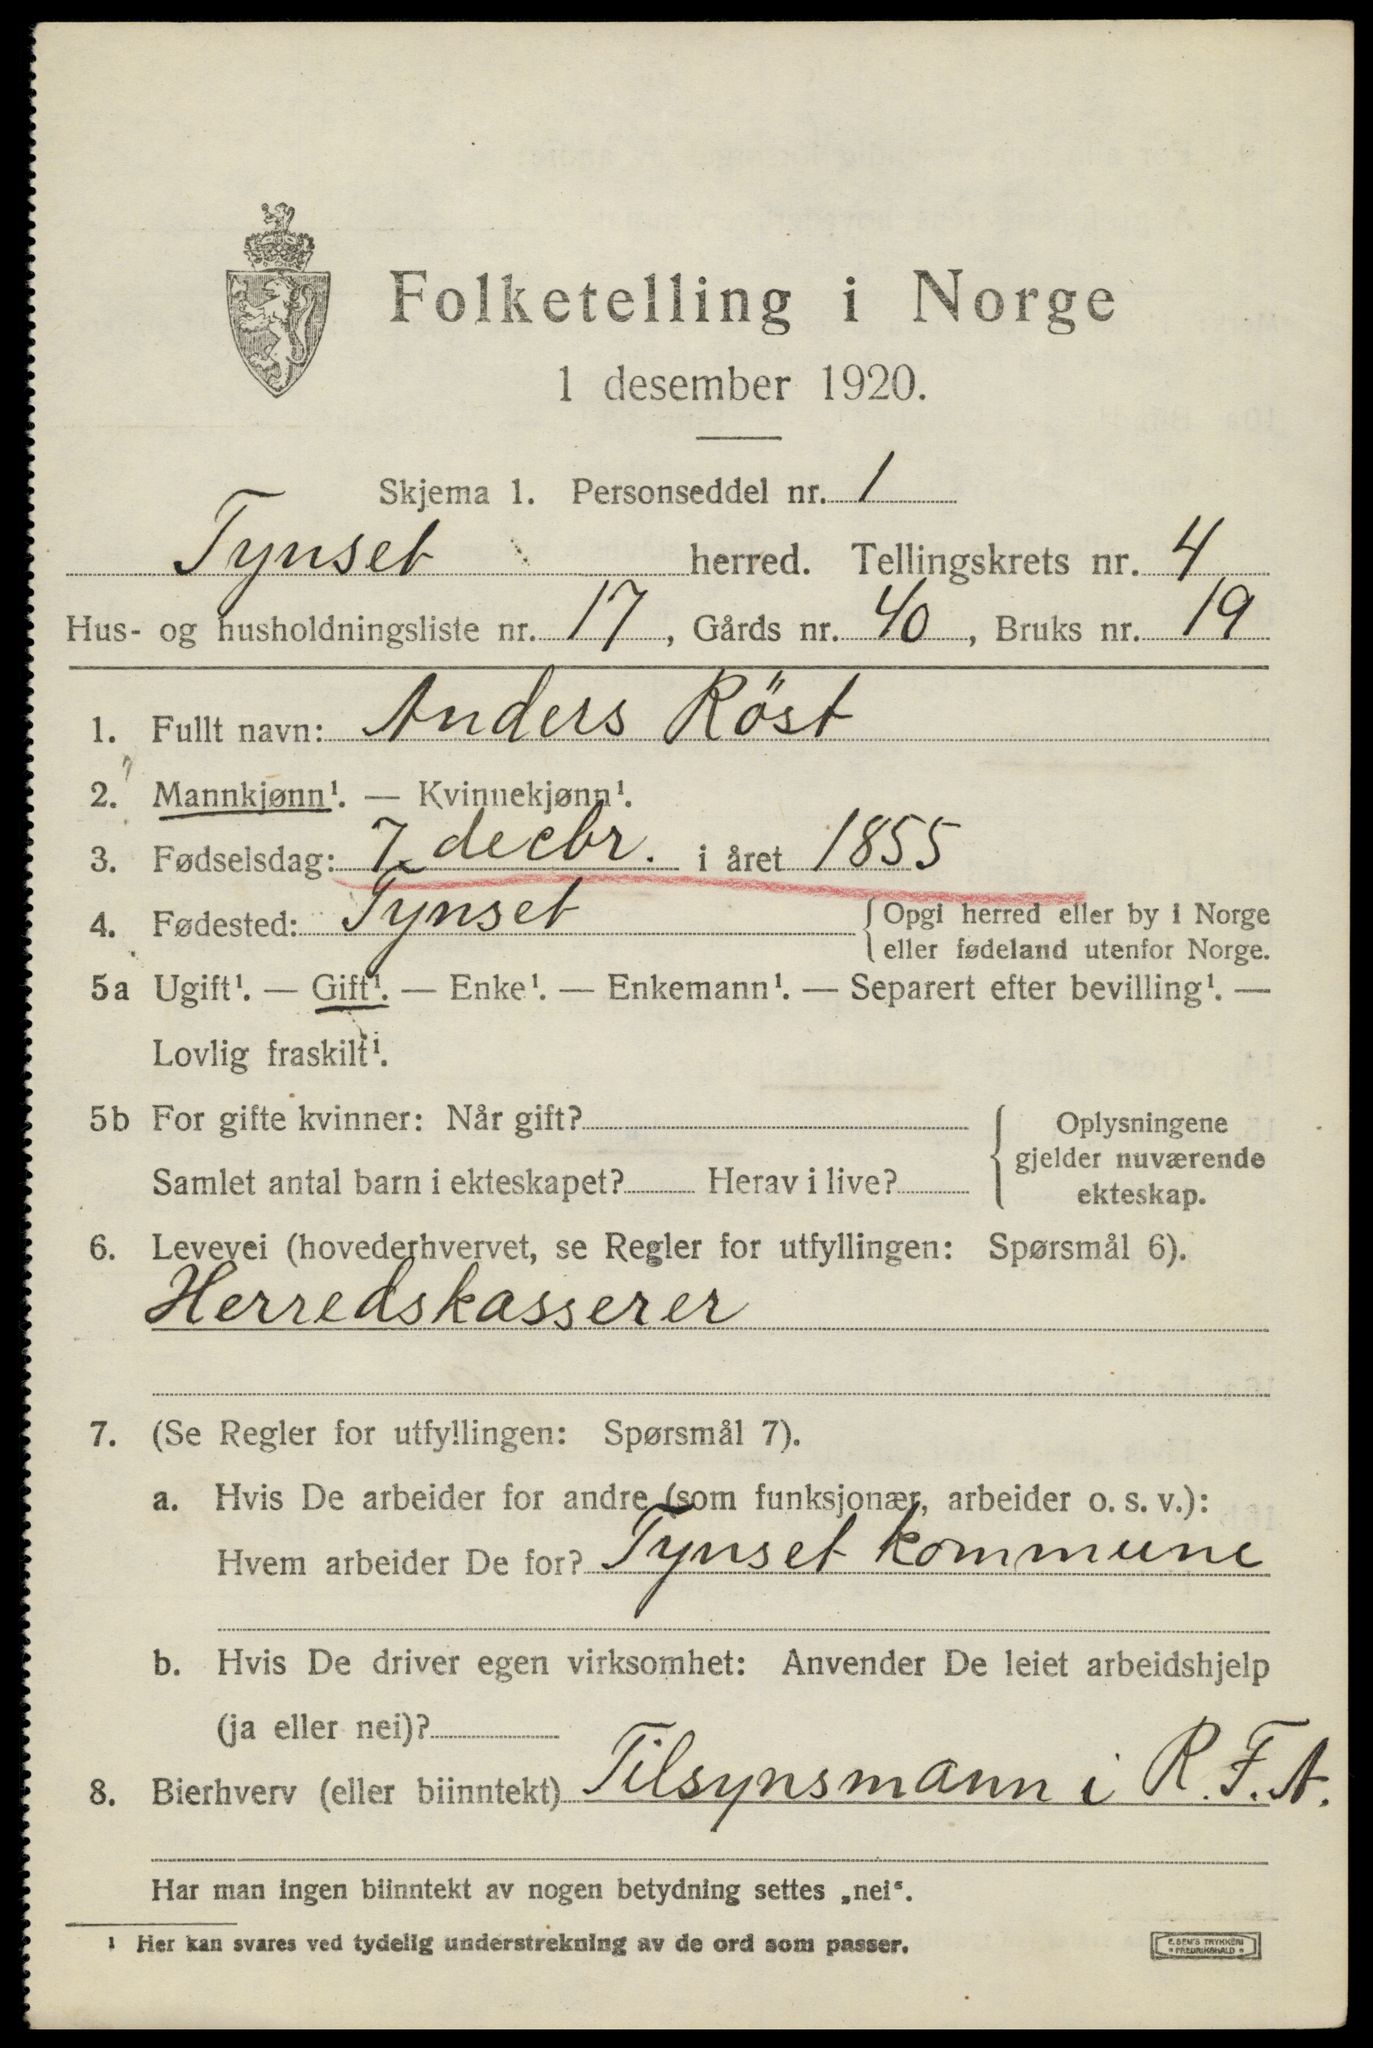 Folketelling i Norge
1 desember 1920.
Skjema 1. Personseddel nr. 1
Tynset herred. Tellingskrets nr. 4
Hus- og husholdningsliste nr. 17, Gårds nr. 40, Bruks nr. 19
1. Fullt navn: Anders Röst
2. Mannkjønn¹. — Kvinnekjønn¹.
3. Fødselsdag: 7. decbr. i året 1855
4. Fødested: Tynset {Opgi herred eller by i Norge
eller fødeland utenfor Norge.
5a Ugift¹. — Gift¹. — Enke¹. — Enkemann¹. — Separert efter bevilling¹. —
Lovlig fraskilt¹.
5b For gifte kvinner: Når gift?
Samlet antal barn i ekteskapet? Herav i live?
Oplysningene
gjelder nuværende
ekteskap.
6. Levevei (hovederhvervet, se Regler for utfyllingen: Spørsmål 6).
Herredskasserer
7. (Se Regler for utfyllingen: Spørsmål 7).
a. Hvis De arbeider for andre (som funksjonær, arbeider o. s. v.):
Hvem arbeider De for? Tynset kommune
b. Hvis De driver egen virksomhet: Anvender De leiet arbeidshjelp
(ja eller nei)?
8. Bierhverv (eller biinntekt) Tilsynsmann i R.F.A.
Har man ingen biinntekt av nogen betydning settes „nei“.
¹ Her kan svares ved tydelig understrekning av de ord som passer.
E. SEM'S TRYKKERI
FREDRIKSHALD